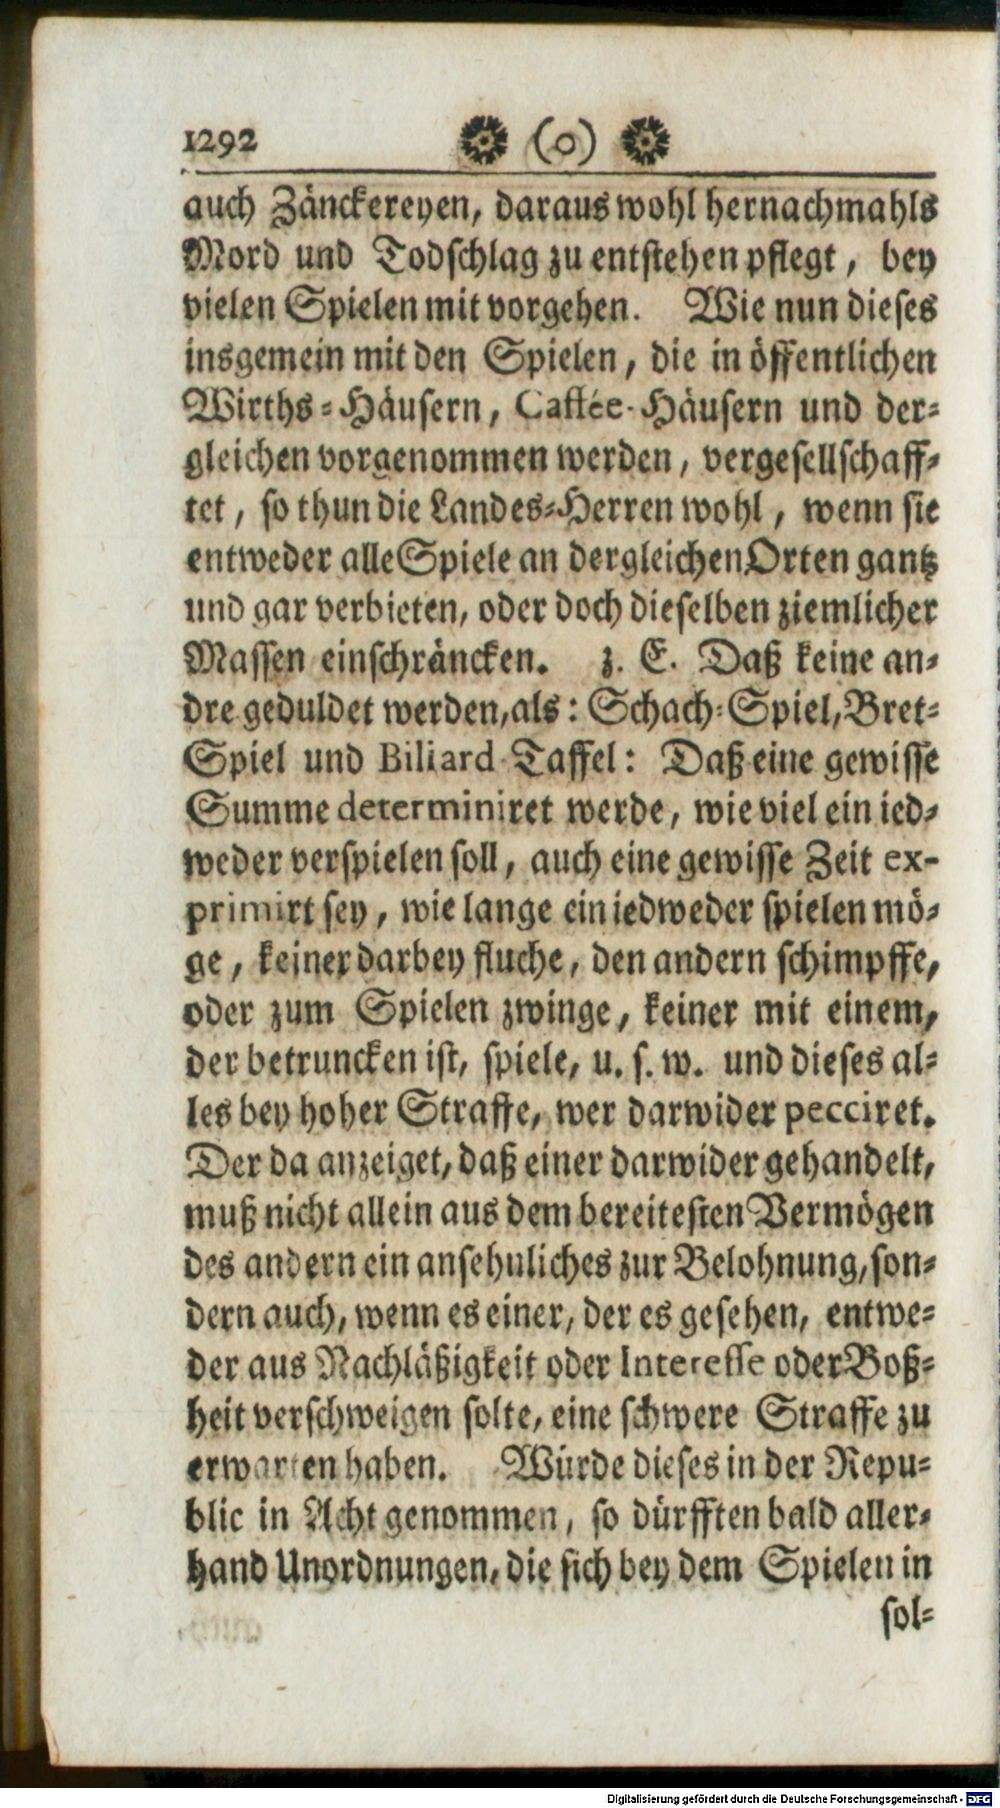 1292 (o)
auch Zänckereyen, daraus wohl hernachmahls
Mord und Todschlag zu entstehen pflegt, bey
vielen Spielen mit vorgehen. Wie nun dieses
insgemein mit den Spielen, die in öffentlichen
Wirths-Häusern, Caffée-Häusern und der-
gleichen vorgenommen werden, vergesellschaff-
tet, so thun die Landes-Herren wohl, wenn sie
entweder alle Spiele an dergleichen Orten gantz
und gar verbieten, oder doch dieselben ziemlicher
Massen einschräncken. z. E. Daß keine an-
dre geduldet werden, als: Schach-Spiel, Bret-
Spiel und Biliard-Taffel: Daß eine gewisse
Summe determiniret werde, wie viel ein ied-
weder verspielen soll, auch eine gewisse Zeit ex-
primirt sey, wie lange ein iedweder spielen mö-
ge, keiner darbey fluche, den andern schimpffe,
oder zum Spielen zwinge, keiner mit einem,
der betruncken ist, spiele, u. s. w. und dieses al-
les bey hoher Straffe, wer darwider pecciret.
Der da anzeiget, daß einer darwider gehandelt,
muß nicht allein aus dem bereitesten Vermögen
des andern ein ansehnliches zur Belohnung, son-
dern auch, wenn es einer, der es gesehen, entwe-
der aus Nachläßigkeit oder Interesse oder Boß-
heit verschweigen solte, eine schwere Straffe zu
erwarten haben. Würde dieses in der Repu-
blic in Acht genommen, so dürfften bald aller-
hand Unordnungen, die sich bey dem Spielen in
sol-
Digitalisierung gefördert durch die Deutsche Forschungsgemeinschaft - DFG